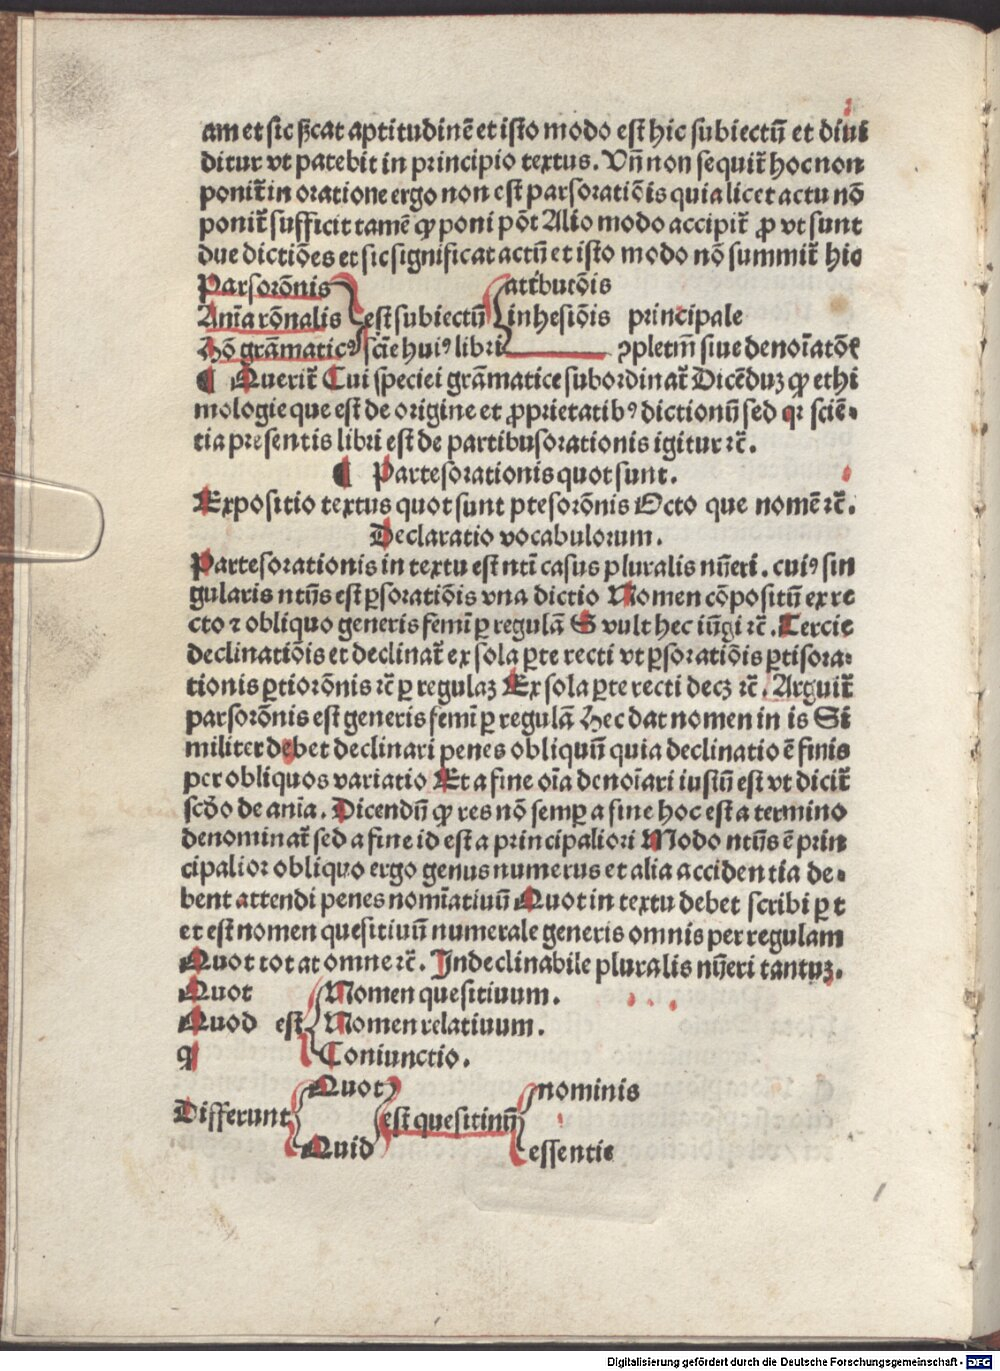 am et sic ſſcat aptitudinē et isto modo est hic subiectū et diui
ditur vt patebit in principio textus. Vn̄ non sequit̄ hoc non
ponit̄ in oratione ergo non est parsoratiōis quia licet actu nō
ponit̄ sufficit tamē ꝙ poni pōt Alio modo accipit̄ ꝓ vt sunt
due dictiōes et sic significat actū et isto modo nō summit̄ hic
Parsorōnis attributōis
Anīa rōnalis est subiectū inhesiōis principale
Hō grāmaticꝰ scīe huiꝰ libri ꝯpletīm siue denoīatōē
¶ Querit̄ Cui speciei grāmatice subordinat̄ Dicēduꝫ ꝙ ethi
mologie que est de origine et ꝓprietatibꝰ dictionū sed qꝛ sciē-
tia presentis libri est de partibusorationis igitur ꝛc̄.
¶ Partesorationis quot sunt.
Expositio textus quot sunt ptesorōnis Octo que nomē ꝛc̄.
Declaratio vocabulorum.
Partesorationis in textu est nt̄i casus pluralis nūeri. cuiꝰ sin
gularis nt̄ūs est ꝑsoratiōis vna dictio Nomen cōpositū ex re
cto ⁊ obliquo generis femī ꝑ regulā S vult hec iūgi ꝛc̄. Tercie
declinatiōis et declinat̄ ex sola ꝑte recti vt ꝑsoratiōis ꝑtisora-
tionis ꝑtiorōnis ꝛc̄ ꝑ regulaꝫ Ex sola ꝑte recti decꝫ ꝛc̄. Arguit̄
parsorōnis est generis femī ꝑ regulā Hec dat nomen in is Si
militer debet declinari penes obliquū quia declinatio ē finis
per obliquos variatio Et a fine oīa denoīari iustū est vt dicit̄
scd̄o de anīa. Dicendū ꝙ res nō semꝑ a fine hoc est a termino
denominat̄ sed a fine id est a principaliori Modo nt̄ūs ē prin
cipalior obliquo ergo genus numerus et alia accidentia de-
bent attendi penes nomīatiuū Quot in textu debet scribi ꝑ t
et est nomen quesitiuū numerale generis omnis per regulam
Quot tot at omne ꝛc̄. Indeclinabile pluralis nūeri tantuꝫ.
Quot Nomen quesitiuum.
Quod est Nomen relatiuum.
ꝙ Coniunctio.
Quot nominis
Differunt est quesitiuū
Quid essentie
Digitalisierung gefördert durch die Deutsche Forschungsgemeinschaft - DFG